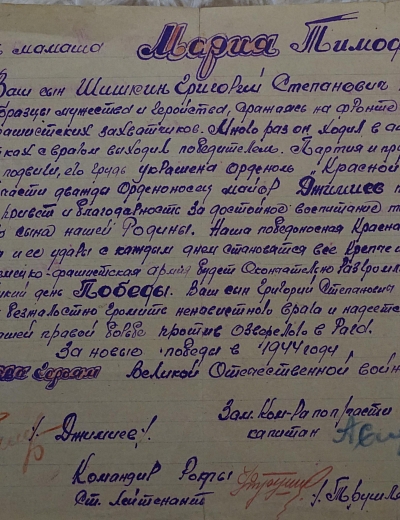 мамаша Мария Тимоф
Ваш сын Шишкин Григорий Степанович
образцы мужества и геройства, сражаясь на фронте
фашистских захватчиков. Много раз он ходил в а
ках с врагом выходил победителем. Партия и пр
подвиги, его грудь украшена орденом "Красной
части дважды Орденоносец майор Джимиев п
привет и благодарность за достойное воспитание т
сына нашей Родины. Наша победоносная Красна
и ее удары с каждым днем становятся все крепче и
немецко-фашистская армия будет окончательно разгромл
кий день Победы. Ваш сын Григорий Степанович
безжалостно громить ненавистного врага и
шей правой борьбе против озверелого врага.
За новые победы в 1944 году,
Великой Отечественной вой
/. Джимиев/.
Зам. Ком-ра по п/части
капитан
Командир Роты
Ст. Лейтенант